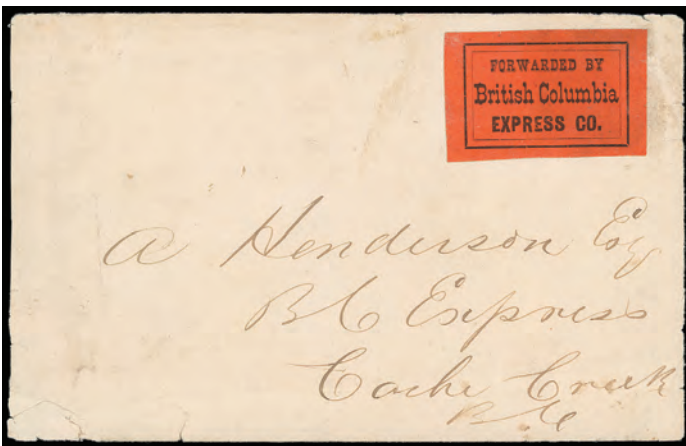 FORWARDED BY
British Columbia
EXPRESS CO.
A Henderson Esq
BC Express
Cache Creek
BC